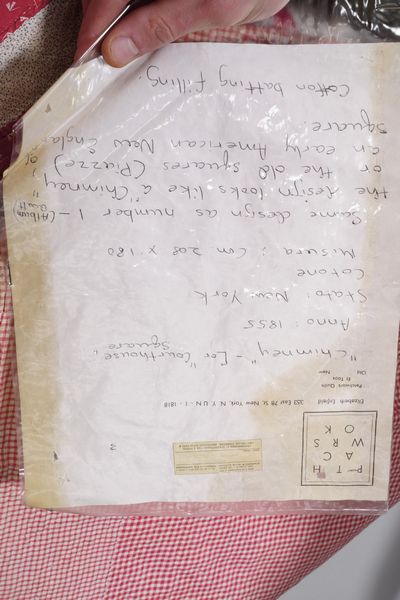 P T H
A C
W R S
O K
Elizabeth Enfield
Patchwork Quilts
Et Toos
Old New
353 East 78 St. New York, N.Y. UN-1-1818
3
"Chimney" - (or "Courthouse
Square"
Anno: 1855
Stato: New York
Cotone
Misura: Cm. 208 x 180
Same design as number 1 - (Album
Quilt)
the design looks like a "Chimney"
or the old squares (Piazze) of
an early American New England
square.
Cotton batting filling.